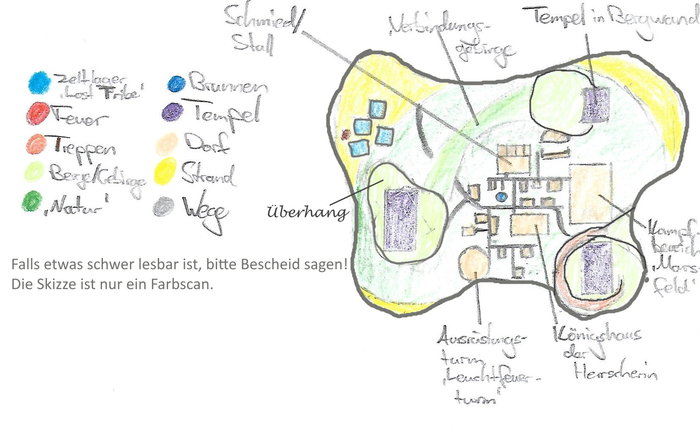 Schmied/
Stall
Verbindungs-
gebirge
Tempel in Bergwand
Zeltlager
'Lost Tribe'
Feuer
Treppen
Berge/Gebirge
'Natur'
Brunnen
Tempel
Dorf
Strand
Wege
Überhang
Falls etwas schwer lesbar ist, bitte Bescheid sagen!
Die Skizze ist nur ein Farbscan.
Kampf-
bereich
'Mars-
feld'
Ausrüstungs-
turm
'Leuchtfeuer-
turm'
Königshaus
der
Herrscherin